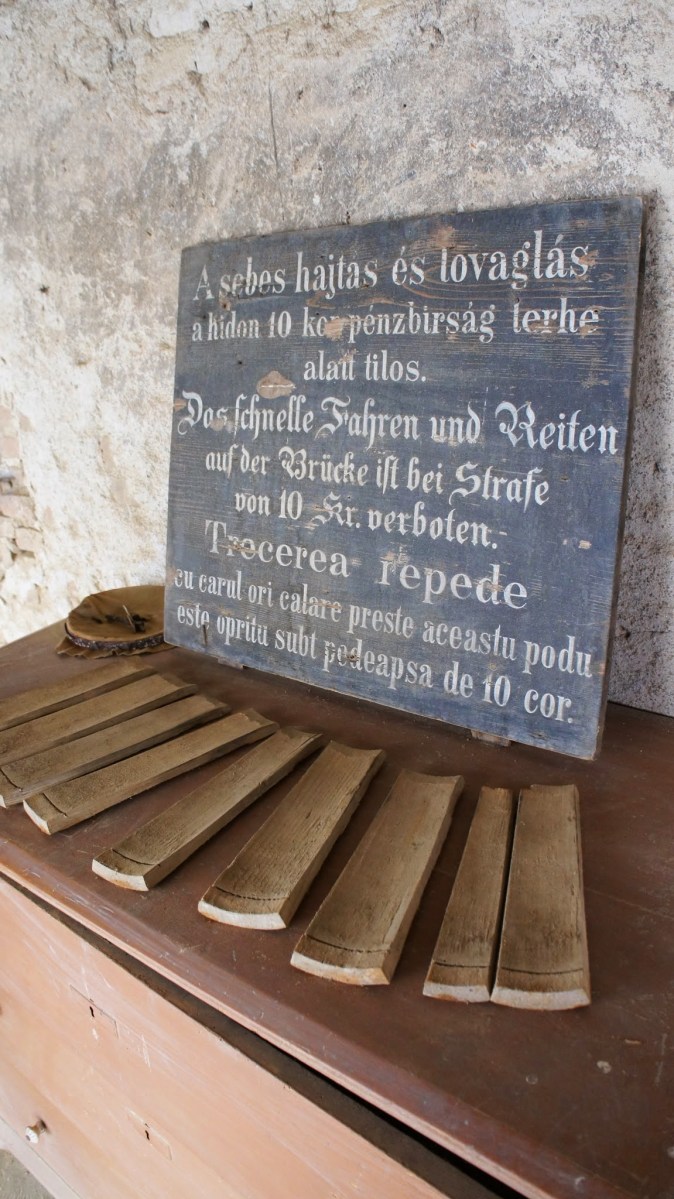 A sebes hajtás és lovaglás
a hidon 10 kor pénzbirság terhe
alatt tilos.
Das schnelle Fahren und Reiten
auf der Brücke ist bei Strafe
von 10 Kr. verboten.
Trecerea repede
cu carul ori calare preste aceastu podu
este opritu subt pedeapsa de 10 cor.